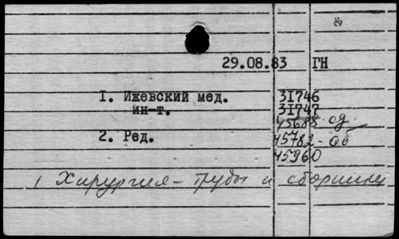 29.08.83 ГН
1. Ижевский мед. 31746
ин-т. 31747
45688-од
2. Ред. 45782-об
45960
1 Хирургия - труды и сборники